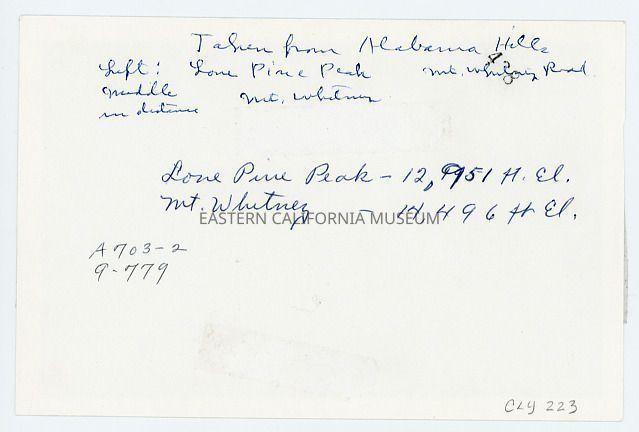 Taken from Alabama Hills
Left: Lone Pine Peak Mt. Whitney Road.
Middle in distance Mt. Whitney
Lone Pine Peak - 12,951 ft. El.
Mt. Whitney - 14,496 ft El.
EASTERN CALIFORNIA MUSEUM
A703-2
9-779
CLY 223